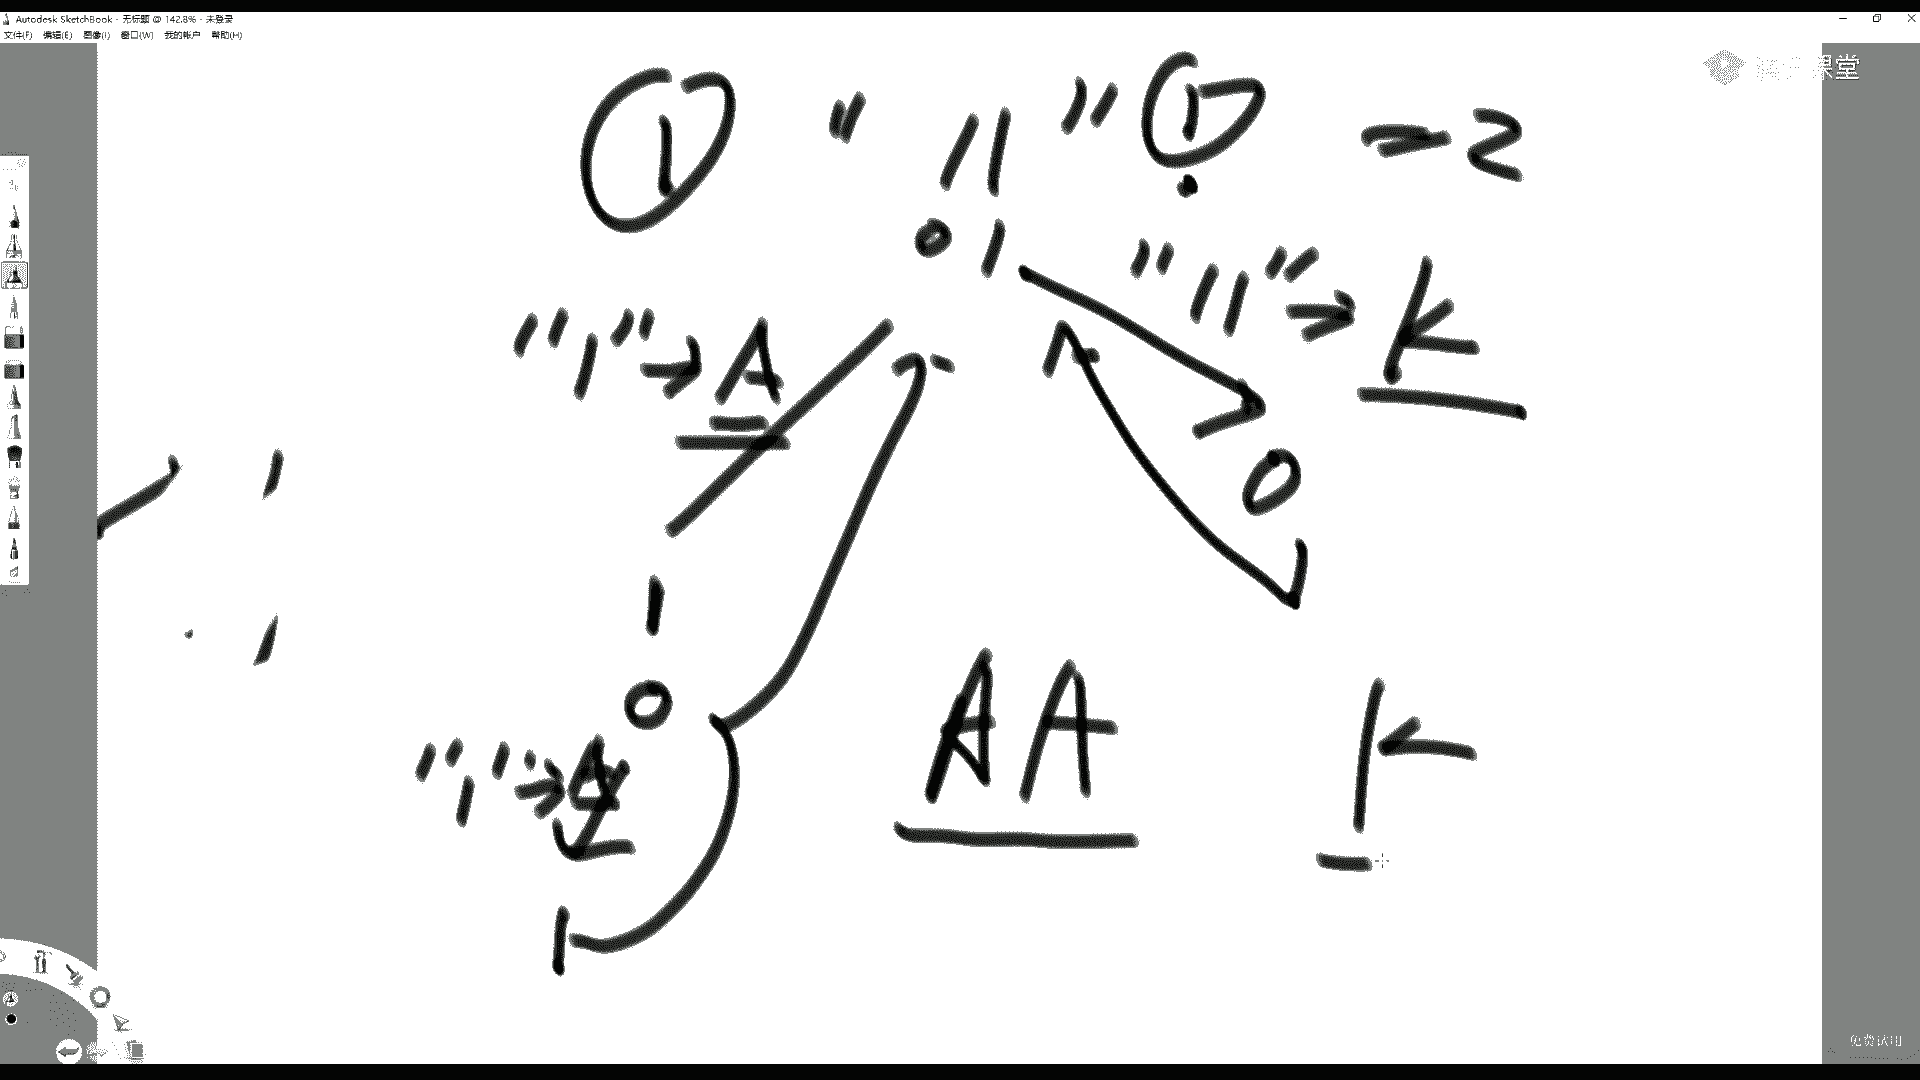 Autodesk SketchBook - 无标题 @ 142.8% - 未登录
文件(F) 编辑(E) 图像(I) 窗口(W) 我的帐户 帮助(H)
课堂
① "11" ① → 2
0 1
"11" → K
"1" → A
0
1
0
"1" → A
AA K
1
免费试用